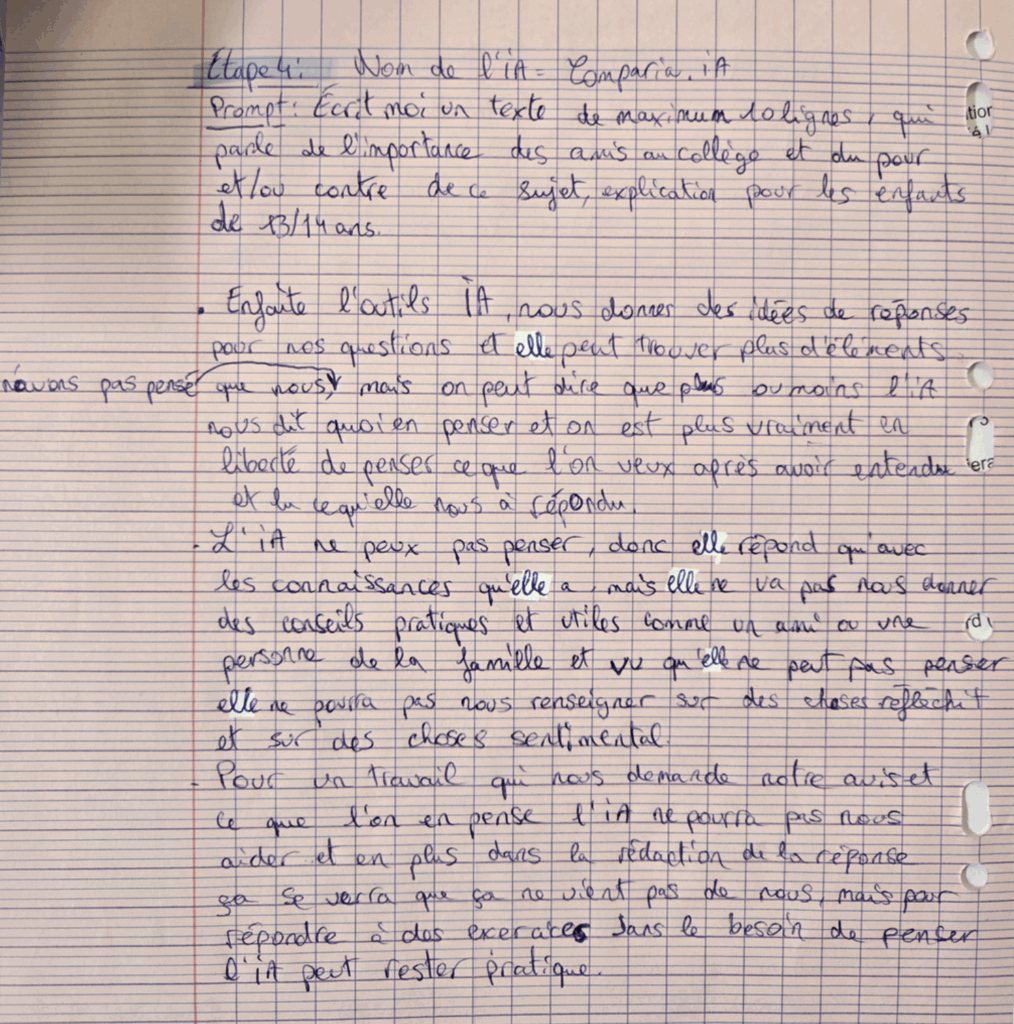 Etape 4 : Nom de l'iA = Comparia.iA
Prompt : Écrit moi un texte de maximum 10 lignes, qui
parle de l'importance des amis au collège et du pour
et/ou contre de ce sujet, explication pour les enfants
de 13/14 ans.
. Enfaite l'outils iA, nous donner des idées de réponses
pour nos questions et elle peut trouver plus d'éléments
que nous n'avons pas pensé, mais on peut dire que plus ou moins l'iA
nous dit quoi en penser et on est plus vraiment en
liberté de penser ce que l'on veux après avoir entendu
et lu ce qu'elle nous à répondu.
- L'iA ne peux pas penser, donc elle répond qu'avec
les connaissances qu'elle a, mais elle ne va pas nous donner
des conseils pratiques et utiles comme un ami ou une
personne de la famille et vu qu'elle ne peut pas penser
elle ne pourra pas nous renseigner sur des choses réfléchit
et sur des choses sentimental.
- Pour un travail qui nous demande notre avis et
ce que l'on en pense l'iA ne pourra pas nous
aider et en plus dans la rédaction de la réponse
ça se verra que ça ne vient pas de nous, mais pour
répondre à des exercices sans le besoin de penser
l'iA peut rester pratique.